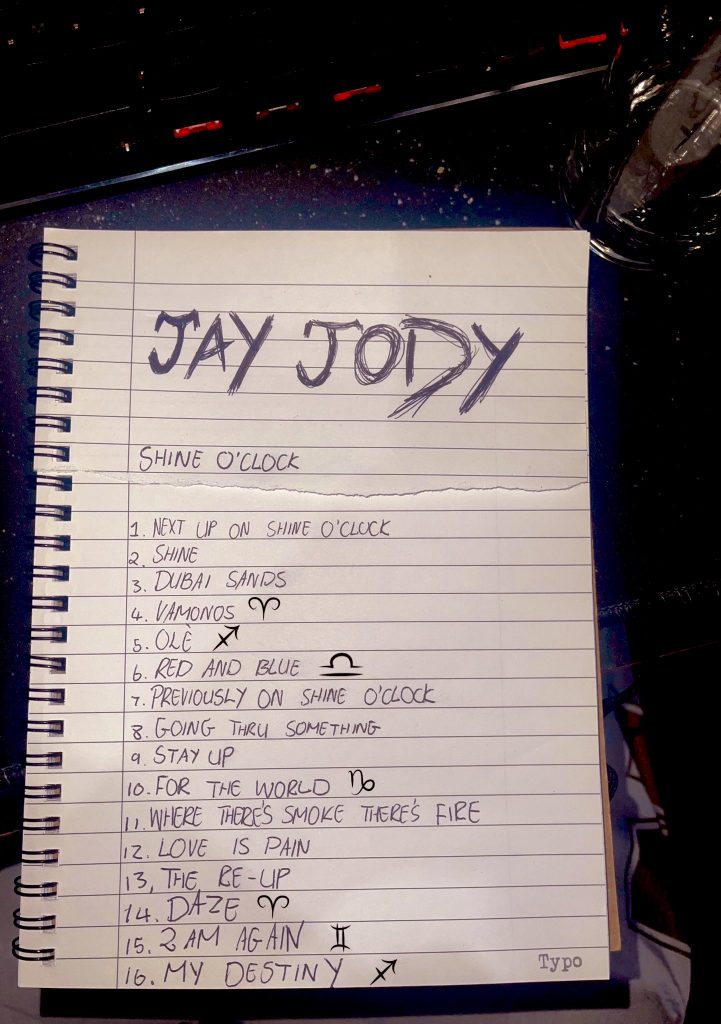 JAY JODY
SHINE O'CLOCK
1. NEXT UP ON SHINE O'CLOCK
2. SHINE
3. DUBAI SANDS
4. VAMONOS ♈
5. OLÈ ♐
6. RED AND BLUE ♎
7. PREVIOUSLY ON SHINE O'CLOCK
8. GOING THRU SOMETHING
9. STAY UP
10. FOR THE WORLD ♑
11. WHERE THERE'S SMOKE THERE'S FIRE
12. LOVE IS PAIN
13, THE RE-UP
14. DAZE ♈
15. 2 AM AGAIN ♊
16. MY DESTINY ♐
Typo